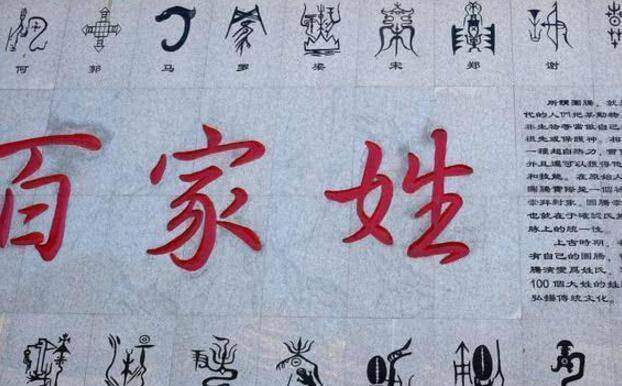 何 郭 马 罗 梁 宋 郑 谢
百家姓
所謂圖騰，就
代的人們把某動物
非生物等當做自己
祖先或保護神。相
一種超自然力，會
并且還可以獲得他
和技能。在原始人
圖騰實際是一個被
崇拜對象。圖騰崇
也就在于確認氏
脉上的統一性。
上古時期，
有自己的圖騰，
騰演變爲姓氏。
100個大姓的姓
弘揚傳統文化。